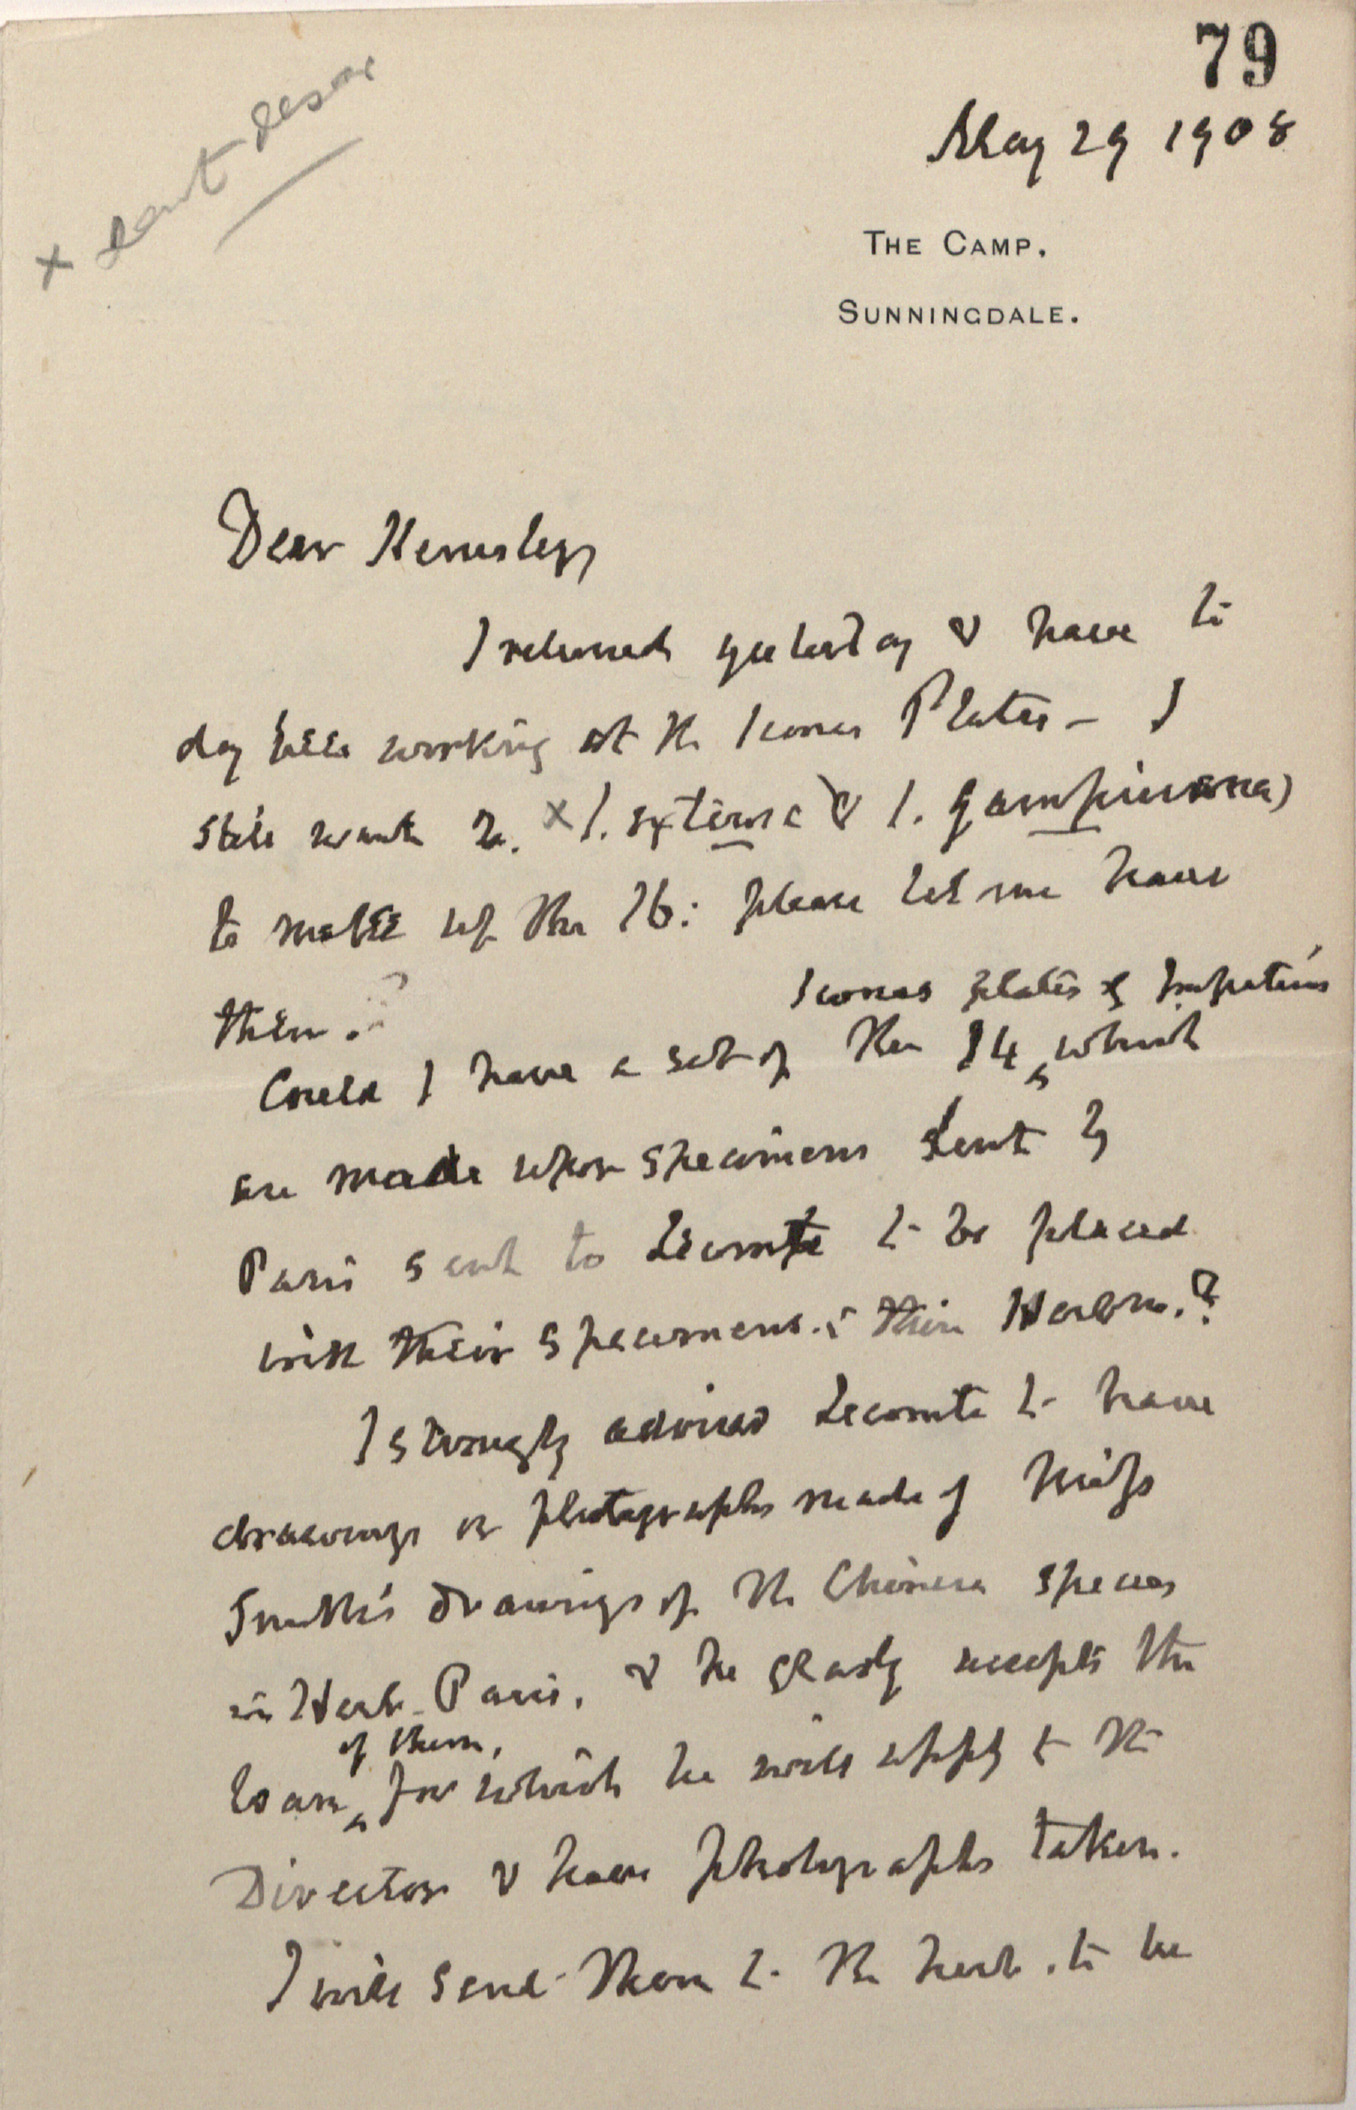 79
x sent
May 29 1908
THE CAMP,
SUNNINGDALE.
Dear Hemsley
I returned yesterday & have to
day been working at the Icones Plates - I
still want 2. x I. & I.
to make up the 16: please let me have
them.?
Icones plates of Impatiens
Could I have a set of the 14 ^ which
are made upon specimens lent by
Paris sent to Lecomte to be placed
with their specimens. in their Herbm.?
I strongly advised Lecomte to have
drawings or photographs made of Miss
Smith's drawings of the Chinese species
in Herb. Paris, & he gladly accepts the
of them,
loan ^ for which he will apply to the
Director & have photographs taken.
I will send them to the herb. to be